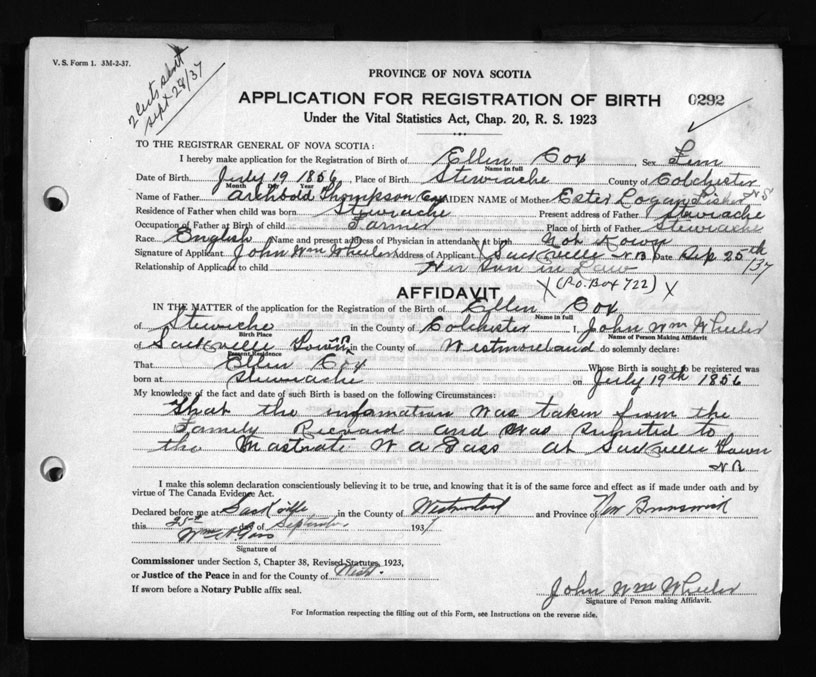 V. S. Form 1. 3M-2-37.
2 certs
Sept 28/37
PROVINCE OF NOVA SCOTIA
APPLICATION FOR REGISTRATION OF BIRTH 0292
Under the Vital Statistics Act, Chap. 20, R. S. 1923
TO THE REGISTRAR GENERAL OF NOVA SCOTIA:
I hereby make application for the Registration of Birth of Ellen Cox Sex Fem
Name in full
Date of Birth July 19 1856, Place of Birth Stewiache County of Colchester
Month Day Year
Name of Father Archbold Thompson Cox MAIDEN NAME of Mother Ester Logan Fisher NS
Residence of Father when child was born Stewiache Present address of Father Stewiache
Occupation of Father at Birth of child Farmer Place of birth of Father Stewiache
Race English Name and present address of Physician in attendance at birth Not Kown
Signature of Applicant John Wm Wheeler Address of Applicant Sackville N.B Date Sep 25th /37
Relationship of Applicant to child Her Son in Law
X (P.O. Box 722) X
AFFIDAVIT
IN THE MATTER of the application for the Registration of the Birth of Ellen Cox
Name in full
of Stewiche in the County of Colchester I, John Wm Wheeler
Birth Place Name of Person Making Affidavit
of Sackville Town in the County of Westmoreland do solemnly declare:
Present Residence
That Ellen Cox Whose Birth is sought to be registered was
born at Stewiache on July 19th 1856
My knowledge of the fact and date of such Birth is based on the following Circumstances:
That the infamation was taken from the
Family Record and was submited to
the Mastrate W A Gass at Sackville Town
N B
I make this solemn declaration conscientiously believing it to be true, and knowing that it is of the same force and effect as if made under oath and by
virtue of The Canada Evidence Act.
Declared before me at Sackville in the County of Westmorland and Province of New Brunswick
this 25th day of September 1937
Wm A Gass
Signature of
Commissioner under Section 5, Chapter 38, Revised Statutes, 1923,
or Justice of the Peace in and for the County of West.
If sworn before a Notary Public affix seal.
John Wm Wheeler
Signature of Person making Affidavit.
For Information respecting the filling out of this Form, see Instructions on the reverse side.